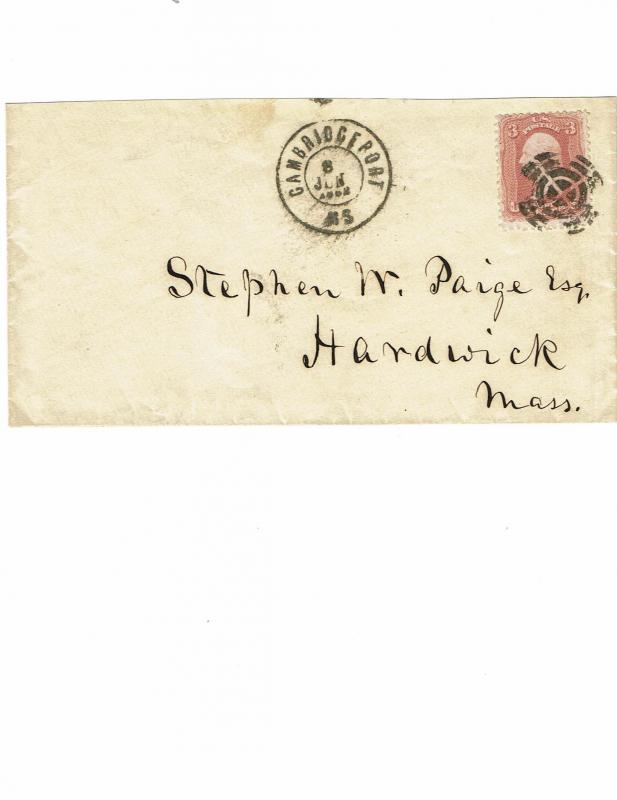 CAMBRIDGEPORT
8
JUN
MS
3 U.S. 3
POSTAGE
Stephen W. Paige Esq.
Hardwick
Mass.